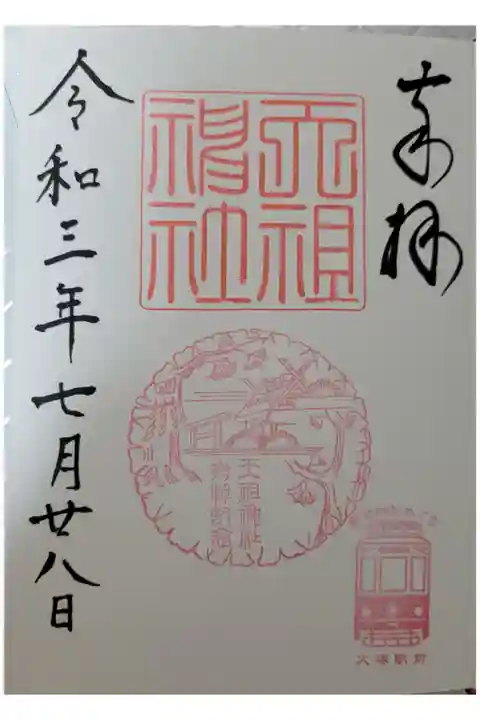 奉拝
天祖
神社
天祖神社
参拝記念
大塚駅前
令和三年七月廿八日